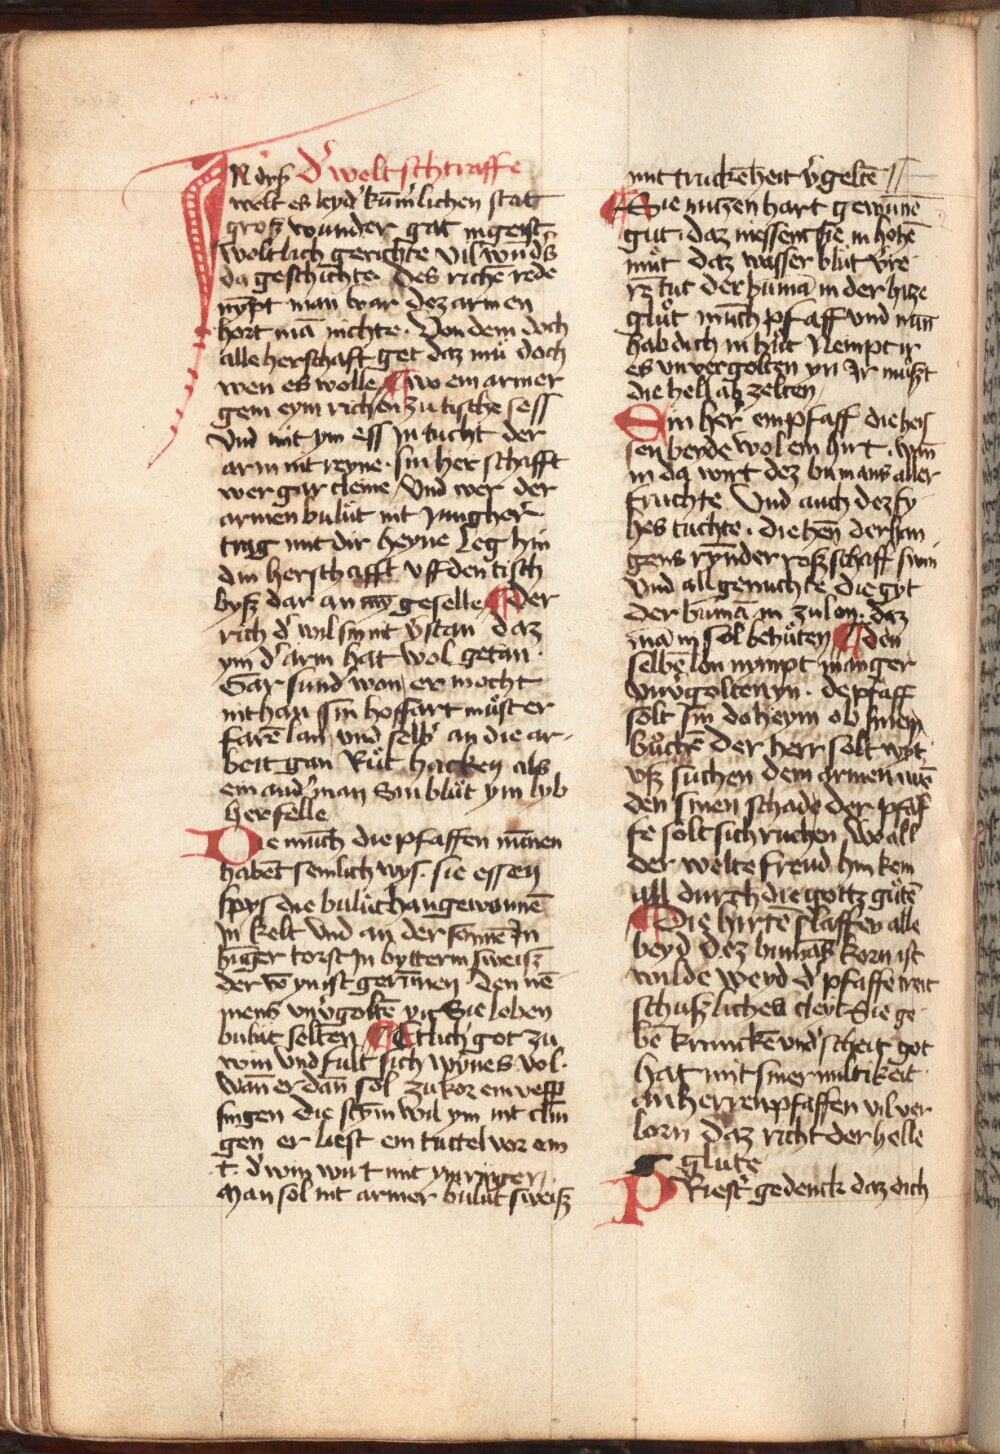 IN dirs d' welt schtraffe
welt es leyd' kūm'lichen statt
groß wunder gat in geist
woltlich gerichte vil wūd's
da geschichte. Des richē rede
nympt man war dez armen
hort mā nichte. Von dem doch
alle herschaft get daz mū doch
wen es wolle ¶ wo ein armer
gem eym richen zu tische sess
Und mit ym ess In tucht der
arm nit reyne. sin her schafft
wer gar cleine Und wer der
armen bulüt nit Jungher
trag mit dir heyne Leg hin
din herschafft uff den tisch
byß dar an geselle ¶ Der
rich d' wil sin nit v'stan daz
ym d' arm hat wol getan.
Gar sund' won er mocht
nit han Sin hoffart müster
farē lan und selb' an die ar-
beit gan Rüt hacken als
ein and' man Sin blüt ym lyb
her felle
Die münch die pfaffen nūnen
habēt semlich wys. sie essen
spys die bulüt han gewonnē
In kelt und an der sonnē In
hūger torst In bytterm sweiß
der wyn ist gerūnen Den nē
mens unv'goltē yn Sie loben
bulüt selten ¶ Etlich got zu
win und fült sich wynes vol.
Wan er dan sol zu kor ein vesp
singen die stym wil ym nit clin
gen er liest ein tuttel vor ein
t. d' win wūt mit ym ringen
Man sol nit armer bulüt sweiß
mit truckēheit v'geltē
¶ Sie nützen hart gewunē
gut. daz niessent sie in hohē
müt daz wasser blüt v're
re tut der bumā in der hize
glüt münch pfaff und nūn
hab dich in hüt Nempt ir
es unvergolten yn Ir müßt
die hell ab zelten
Ein her' ein pfaff die heis
sen beyde wol ein hirt. wan
in da wirt dez bumans aller
fruchte Und auch dez fy-
hes tuchte. die hen der han
gens rynder roß schaff swin
Und all genuchte die gyt
der bumā in zu lon. daz
man in sol behüten ¶ den
selbē lon nympt manger
unv'golten yn. de pfaff
solt sin do heym ob sinem
büchē der herr solt wyt
uß suchen dem armen wē
den sinen schadē der pfaf
fe solt sich ruchen Wo all
der welte freud hin kem
all durch die gottz gütē
¶ Die hirtē slaffen alle
beyd dez bumās korn ist
wilde weyd d' pfaffe treit
schußliches cleyt Sie ge-
bē krumckē und' scheit got
hat mit siner miltikeit
an herren pfaffen vil ver
lorn daz richt der helle
glute
PRiest' gedenck daz dich